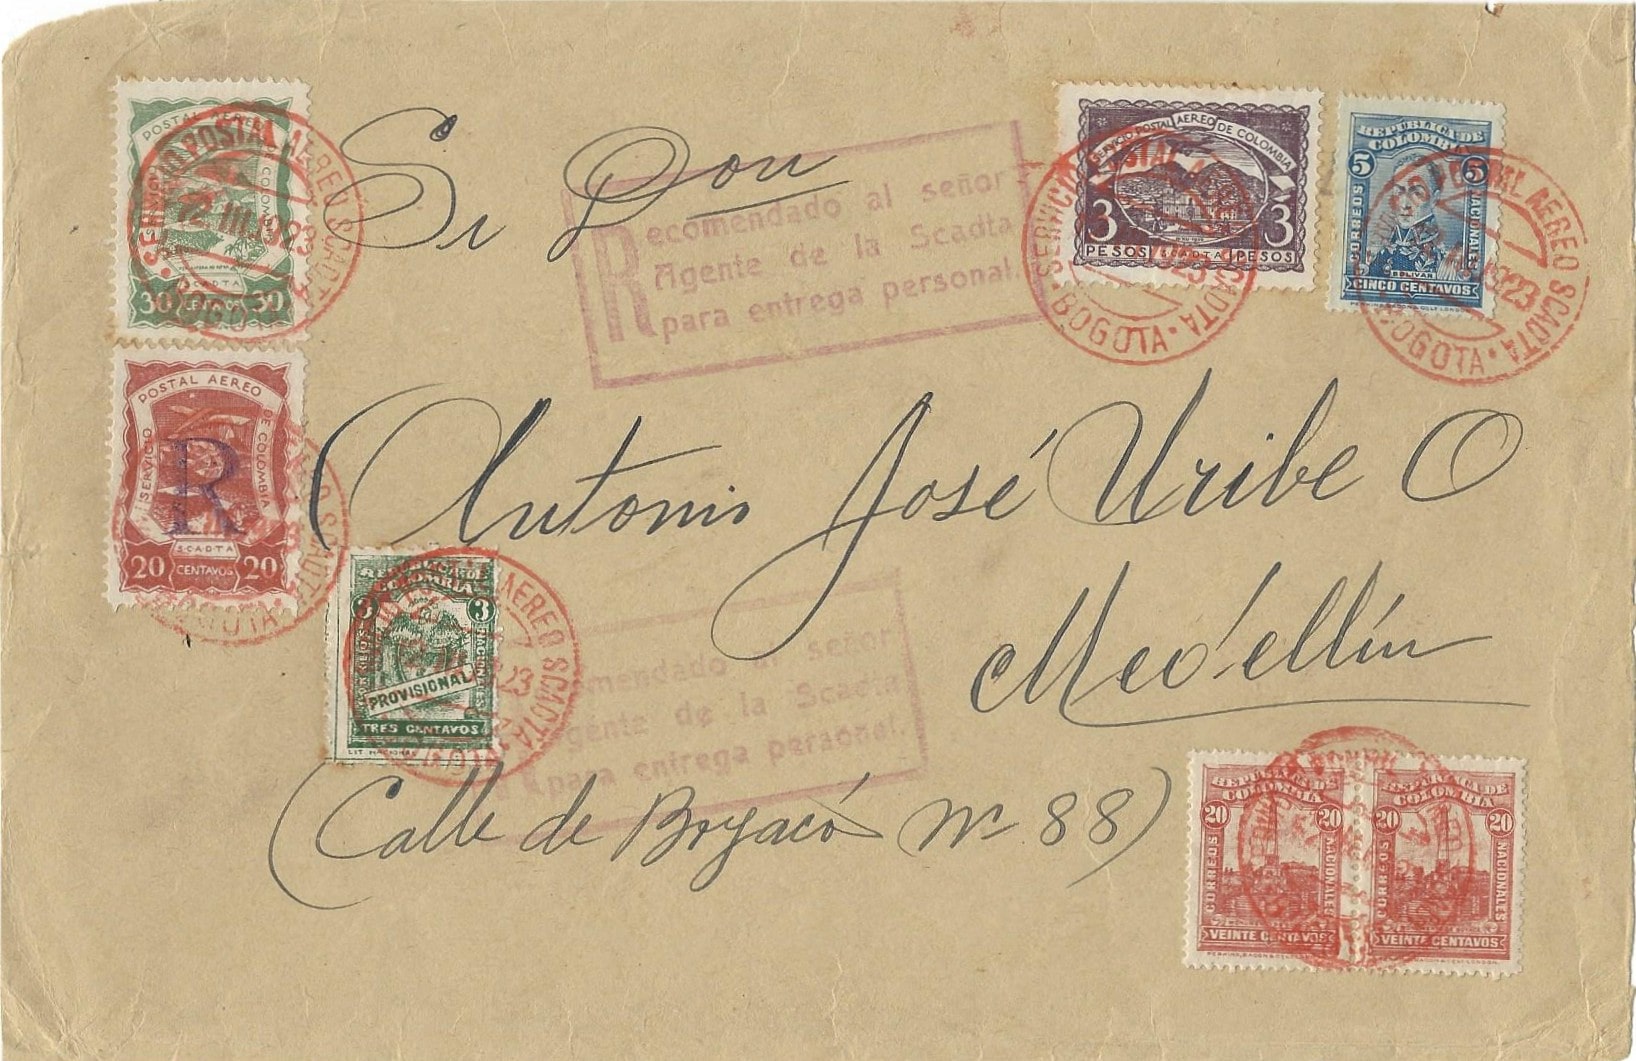 SERVICIO POSTAL AEREO DE COLOMBIA
SCADTA
30 CENTAVOS 30
SERVICIO POSTAL AEREO SCADTA
12 III 1923
BOGOTA
SERVICIO POSTAL AEREO DE COLOMBIA
R
SCADTA
20 CENTAVOS 20
BOGOTA
Sr Don
Recomendado al señor
Agente de la Scadta
para entrega personal.
SERVICIO POSTAL AEREO DE COLOMBIA
3 3
PESOS SCADTA PESOS
SERVICIO POSTAL AEREO SCADTA
1923
BOGOTA
REPUBLICA DE
COLOMBIA
5 5
CORREOS NACIONALES
BOLIVAR
CINCO CENTAVOS
POSTAL AEREO SCADTA
1923
BOGOTA
Antonio José Uribe O
Medellín
(Calle de Boyacá Nº 88)
REPUBLICA DE
COLOMBIA
3 3
CORREOS NACIONALES
PROVISIONAL
TRES CENTAVOS
LIT NACIONAL
AEREO SCADTA
1923
Recomendado al señor
Agente de la Scadta
para entrega personal.
REPUBLICA DE
COLOMBIA
20 20
CORREOS NACIONALES
VEINTE CENTAVOS
REPUBLICA DE
COLOMBIA
20 20
CORREOS NACIONALES
VEINTE CENTAVOS